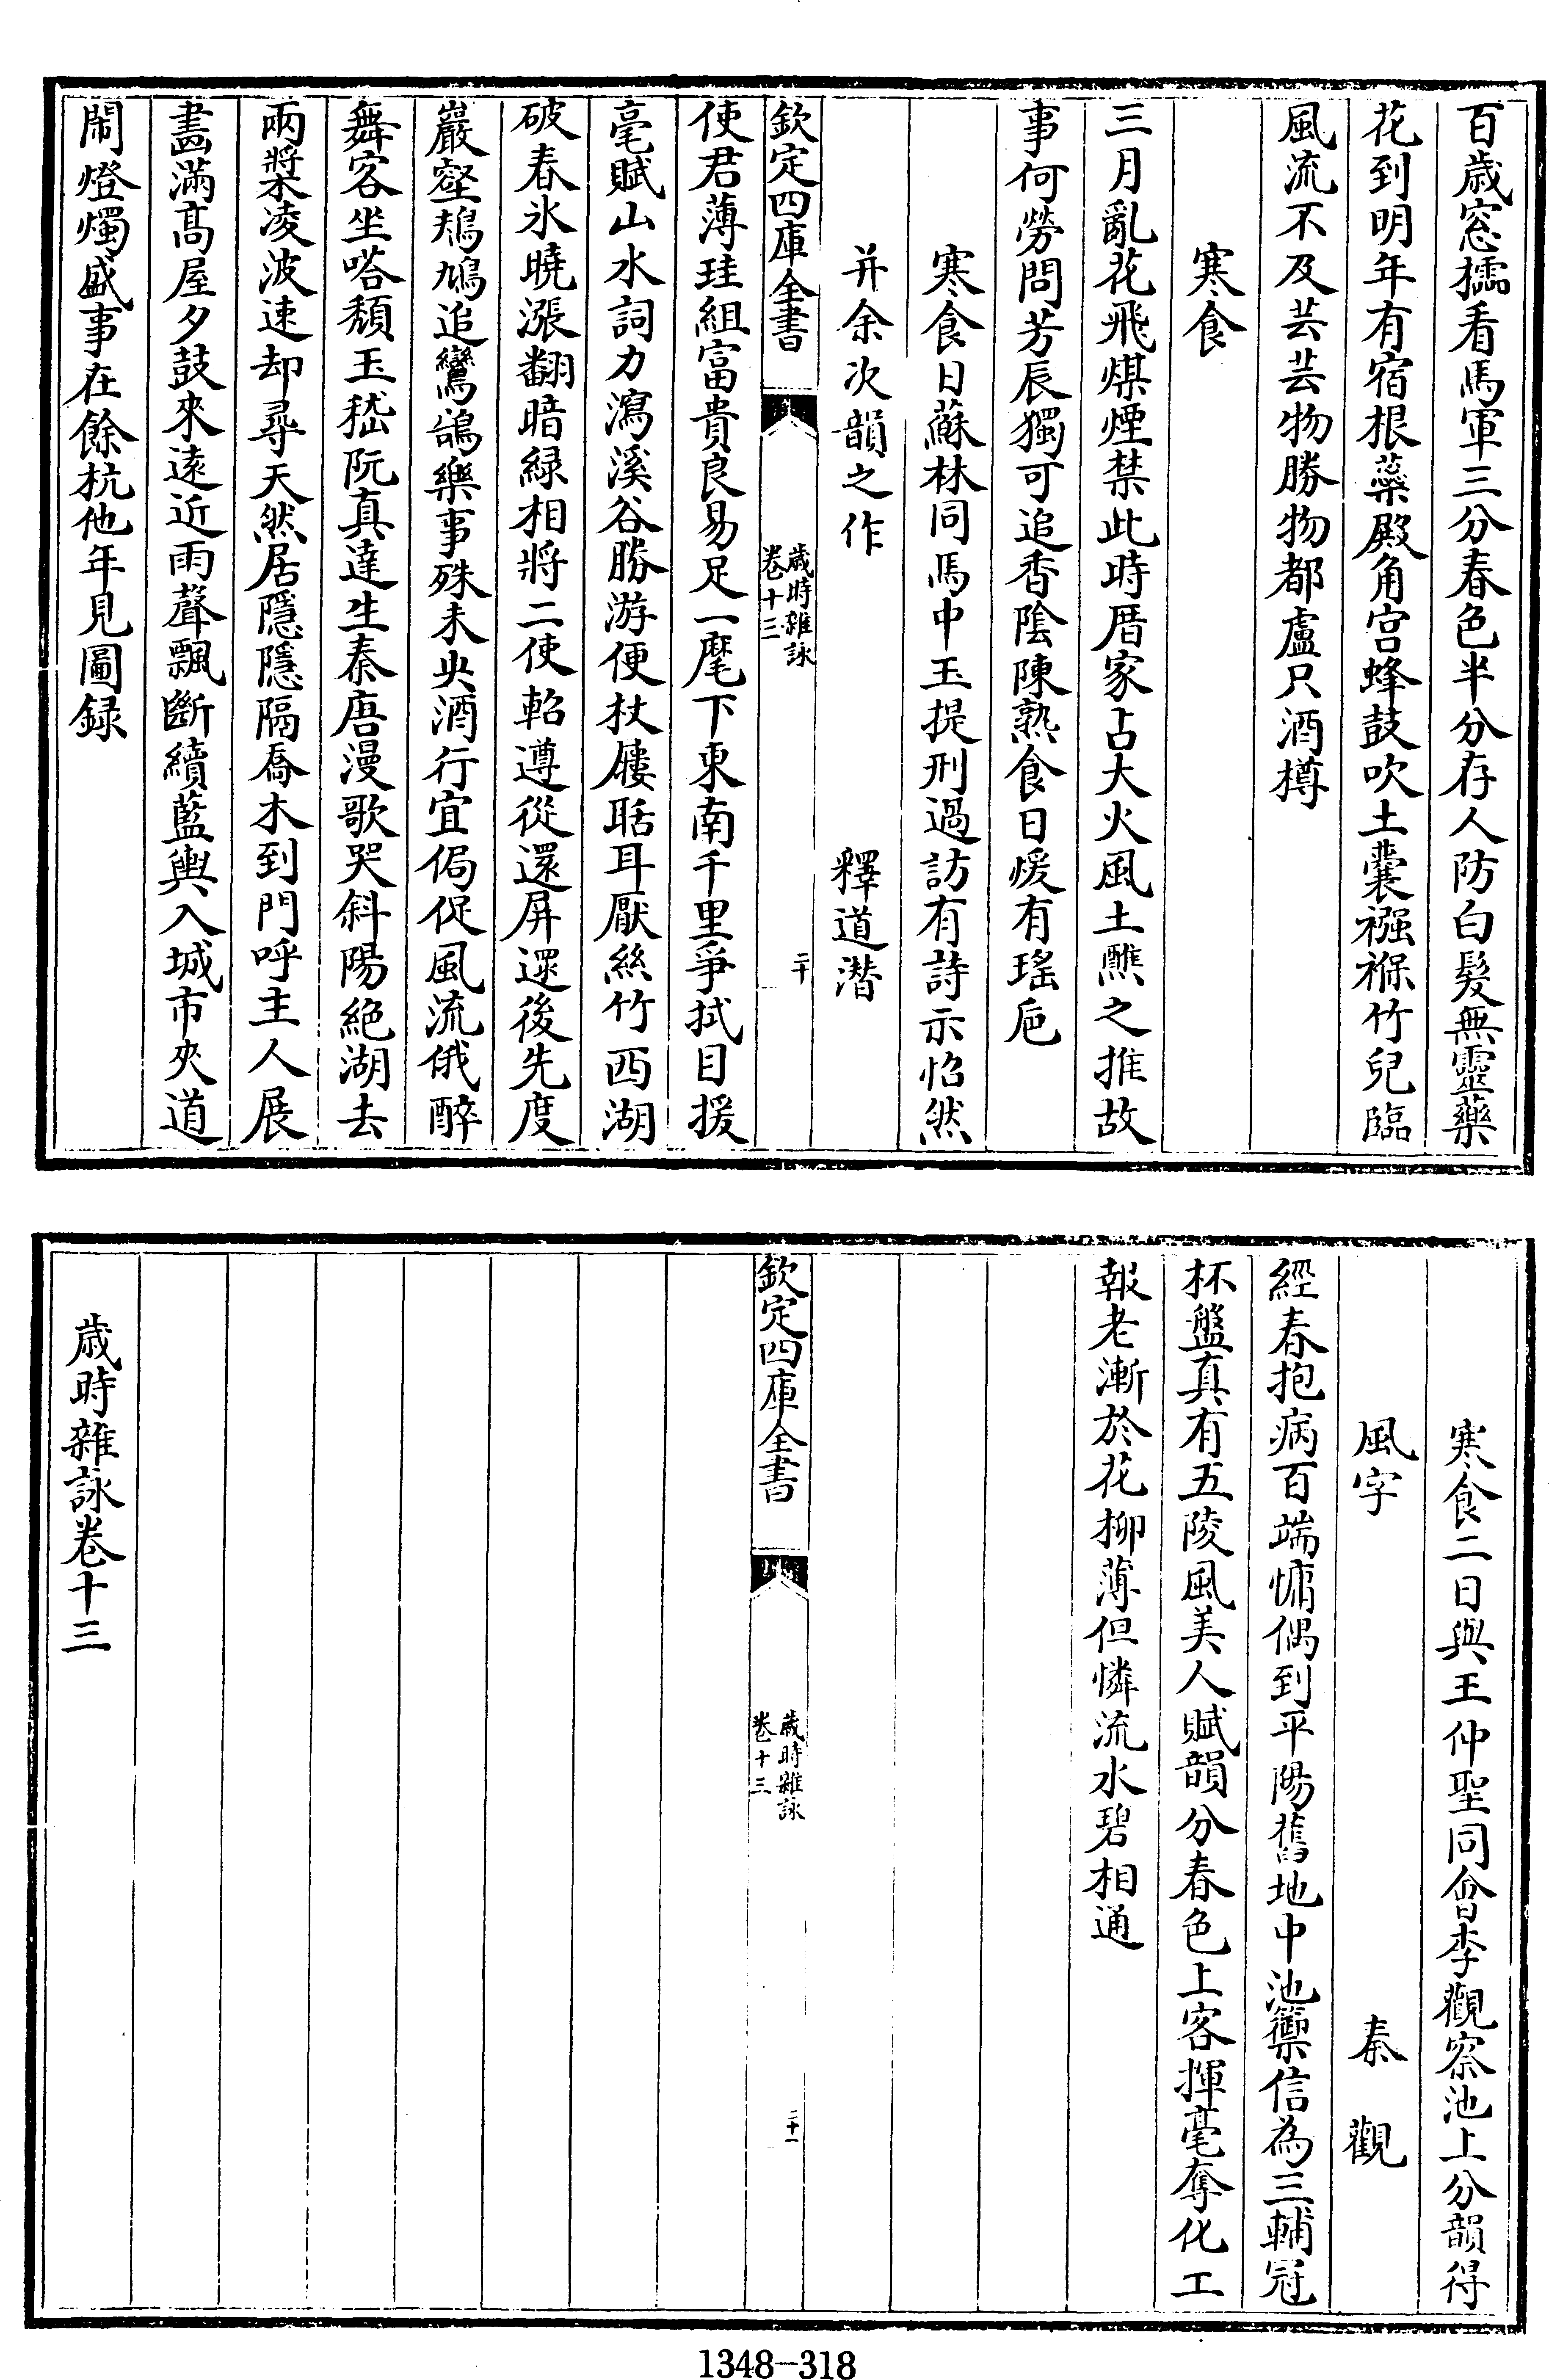 百歳窓擩看馬軍三分春色半分存人防白髮無靈藥
花到明年有宿根蘂殿角宫蜂鼓吹土囊襁褓竹兒臨
風流不及芸芸物勝物都盧只酒樽
寒食
三月亂花飛煤煙禁此時厝家占大火風土驗之推故
事何勞問芳辰獨可追香陰陳熟食日煖有瑤巵
寒食日蘇林同馬中玉提刑過訪有詩示怊然
并余次韻之作 釋道潛
欽定四庫全書 歳時雜詠 卷十三 二十
使君薄珪組富貴良易足一麾下東南千里爭拭目援
毫賦山水詞力瀉溪谷勝游便杖屨聒耳厭絲竹西湖
破春氷曉漲翻暗緑相將二使軺遵從還屏還後先度
巖壑鳩鳩追鸞鵠樂事殊未央酒行宜侷促風流俄醉
舞客坐嗒頹玉嵇阮真達生秦唐漫歌哭斜陽絶湖去
兩槳凌波速却尋天然居隱隱隔喬木到門呼主人展
畫滿髙屋夕鼓來遠近雨聲飄斷續藍輿入城市夾道
閙燈燭盛事在餘杭他年見圖録
寒食二日與王仲聖同會李觀察池上分韻得
風字 秦觀
經春抱病百端慵偶到平陽舊地中池籞信為三輔冠
杯盤真有五陵風美人賦韻分春色上客揮毫奪化工
報老漸於花柳薄但憐流水碧相通
欽定四庫全書 歳時雜詠 卷十三 二十一
歳時雜詠卷十三
1348-318